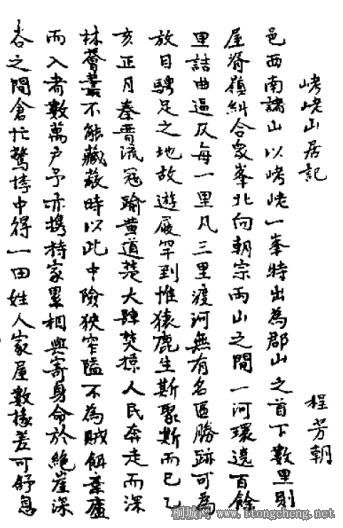 山居記
程芳朝
邑西南諸山以一峯特出為郡山之首下數里則
屋脊嶺糾合眾峯北向朝宗兩山之間一河環遶百餘
里詰曲逼仄每一里凡三里渡河無有名區勝跡可為
放目騁足之地故遊屐罕到惟猿鹿生斯聚斯而已乙
亥正月秦晉流寇踰黃道楚大肆焚掠人民奔走而深
林薈叢不能藏蔽時以此中險狹窄隘不為賊餌棄廬
而入者數萬戶予亦攜持家累相與寄身命於絕崖深
谷之間倉忙驚悸中得一田姓人家屋數椽差可舒息